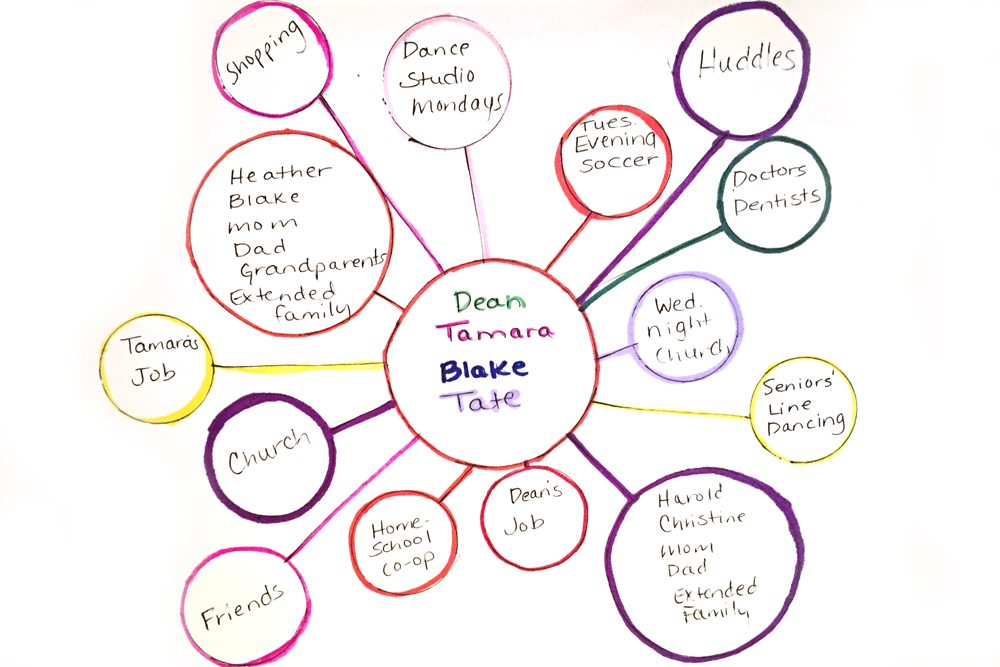 Shopping
Dance
Studio
Mondays
Huddles
Tues.
Evening
Soccer
Doctors
Dentists
Heather
Blake
mom
Dad
Grandparents
Extended
family
Dean
Tamara
Blake
Tate
Wed.
night
Church
Tamara's
Job
Seniors'
Line
Dancing
Church
Home-
School
co-op
Dean's
Job
Harold
Christine
mom
Dad
Extended
Family
Friends